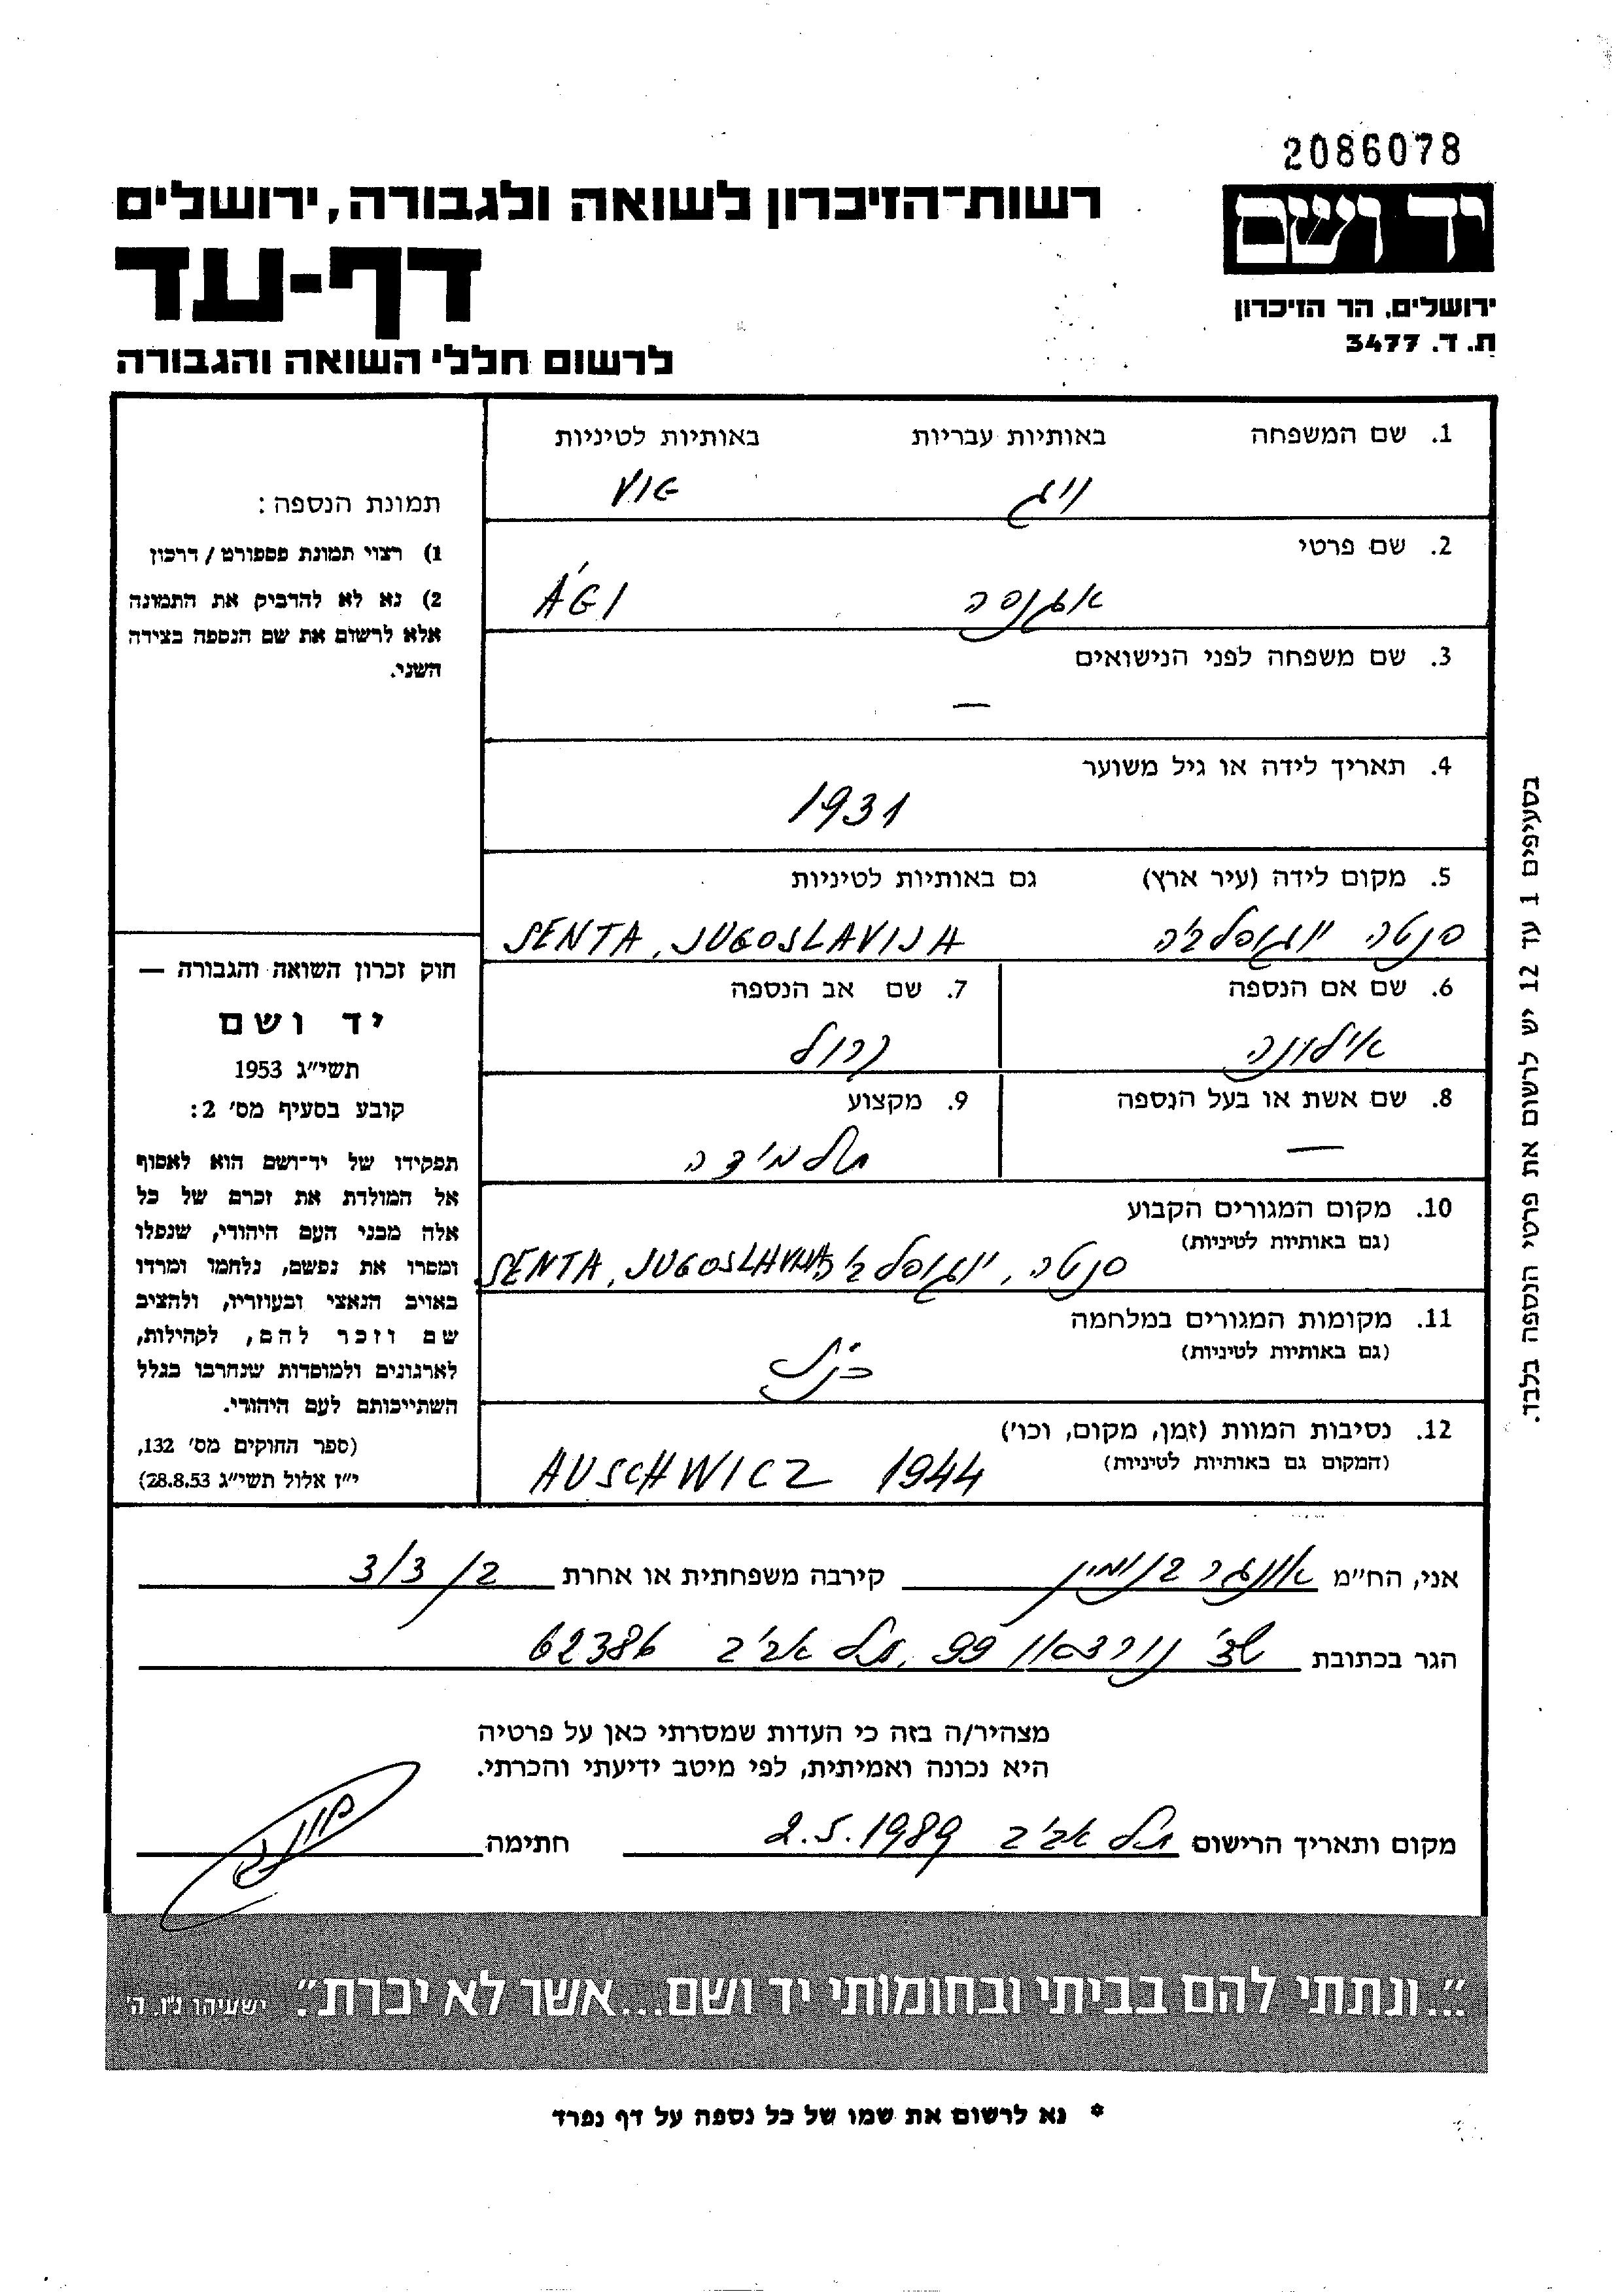 2086078
יד ושם
רשות־הזיכרון לשואה ולגבורה, ירושלים
דף-עד
ירושלים, הר הזיכרון
ת. ד. 3477
לרשום חללי השואה והגבורה
1. שם המשפחה באותיות עבריות באותיות לטיניות
ויג VIG
2. שם פרטי
אגנסה ÁGI
3. שם משפחה לפני הנישואים
—
4. תאריך לידה או גיל משוער
1931
5. מקום לידה (עיר ארץ) גם באותיות לטיניות
סנטה יוגוסלביה SENTA, JUGOSLAVIJA
6. שם אם הנספה 7. שם אב הנספה
אילונה קרול
8. שם אשת או בעל הנספה 9. מקצוע
— תלמידה
10. מקום המגורים הקבוע
(גם באותיות לטיניות)
סנטה, יוגוסלביה SENTA, JUGOSLAVIJA
11. מקומות המגורים במלחמה
(גם באותיות לטיניות)
כנ״ל
12. נסיבות המוות (זמן, מקום, וכו')
(המקום גם באותיות לטיניות)
AUSCHWICZ 1944
תמונת הנספה:
1) רצוי תמונת פספורט / דרכון
2) נא לא להדביק את התמונה
אלא לרשום את שם הנספה בצידה
השני.
חוק זכרון השואה והגבורה —
יד ושם
תשי"ג 1953
קובע בסעיף מס' 2:
תפקידו של יד־ושם הוא לאסוף
אל המולדת את זכרם של כל
אלה מבני העם היהודי, שנפלו
ומסרו את נפשם, נלחמו ומרדו
באויב הנאצי ובעוזריו, ולהציב
שם וזכר להם, לקהילות,
לארגונים ולמוסדות שנחרבו בגלל
השתייכותם לעם היהודי.
(ספר החוקים מס' 132,
י"ז אלול תשי"ג 28.8.53)
בסעיפים 1 עד 12 יש לרשום את פרטי הנספה בלבד.
אני, הח"מ אונגר בנימין קירבה משפחתית או אחרת
הגר בכתובת שד' נורדאו 99, תל אביב 62386
מצהיר/ה בזה כי העדות שמסרתי כאן על פרטיה
היא נכונה ואמיתית, לפי מיטב ידיעתי והכרתי.
מקום ותאריך הרישום תל אביב 2.5.1989 חתימה
"...ונתתי להם בביתי ובחומותי יד ושם...אשר לא יכרת". ישעיהו נ"ו, ה'
* נא לרשום את שמו של כל נספה על דף נפרד